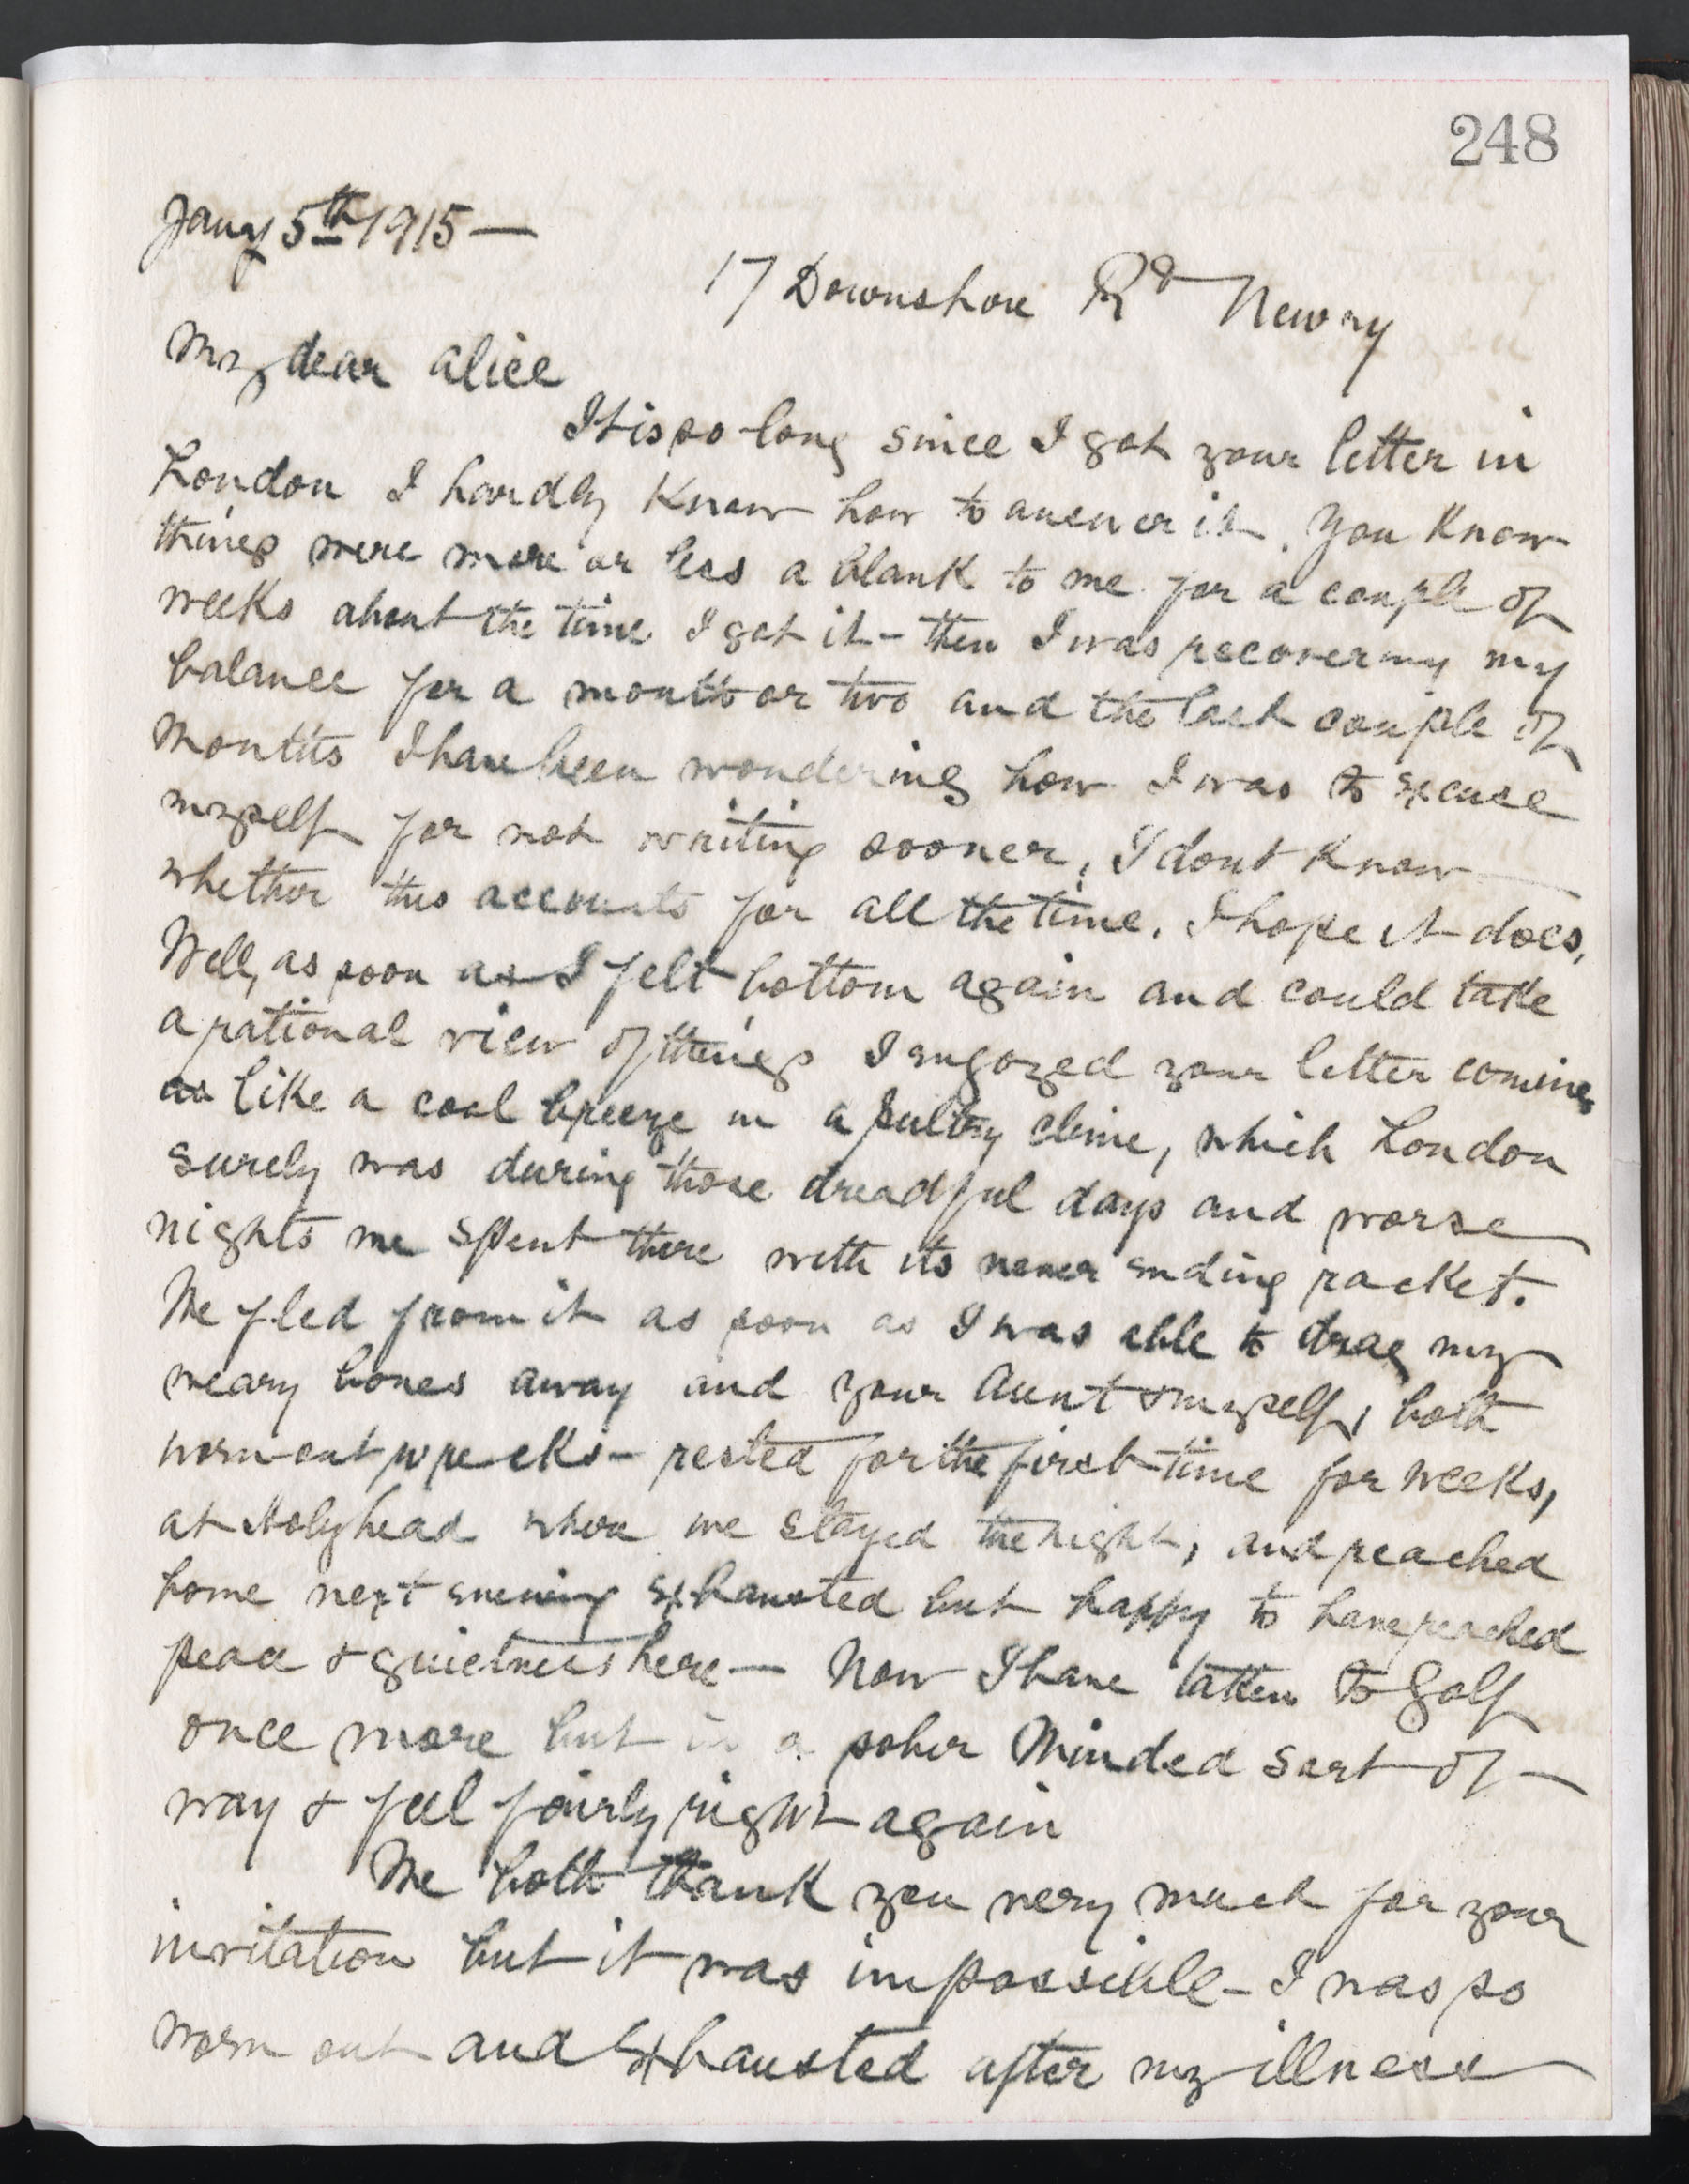 248
Jany 5th 1915 —
17 Downshire Rd Newry
My dear Alice
It is so long since I got your letter in
London I hardly know how to answer it. You know
things were more or less a blank to me for a couple of
weeks about the time I got it - then I was recovering my
balance for a month or two and the last couple of
months I have been wondering how I was to excuse
myself for not writing sooner, I dont know
whether this accounts for all the time. I hope it does,
Well, as soon as I felt bottom again and could take
a rational view of things I enjoyed your letter coming
as like a cool breeze in a sultry clime, which London
surely was during those dreadful days and worse
nights we spent there with its never ending racket.
We fled from it as soon as I was able to drag my
weary bones away and your Aunt & myself, both
worn-out wrecks - rested for the first time for weeks,
at Holyhead where we stayed the night, and reached
home next evening exhausted but happy to have reached
peace & quietness here — Now I have taken to golf
once more but in a sober minded sort of —
way & feel fairly right again
We both thank you very much for your
invitation but it was impossible - I was so
worn out and exhausted after my illness